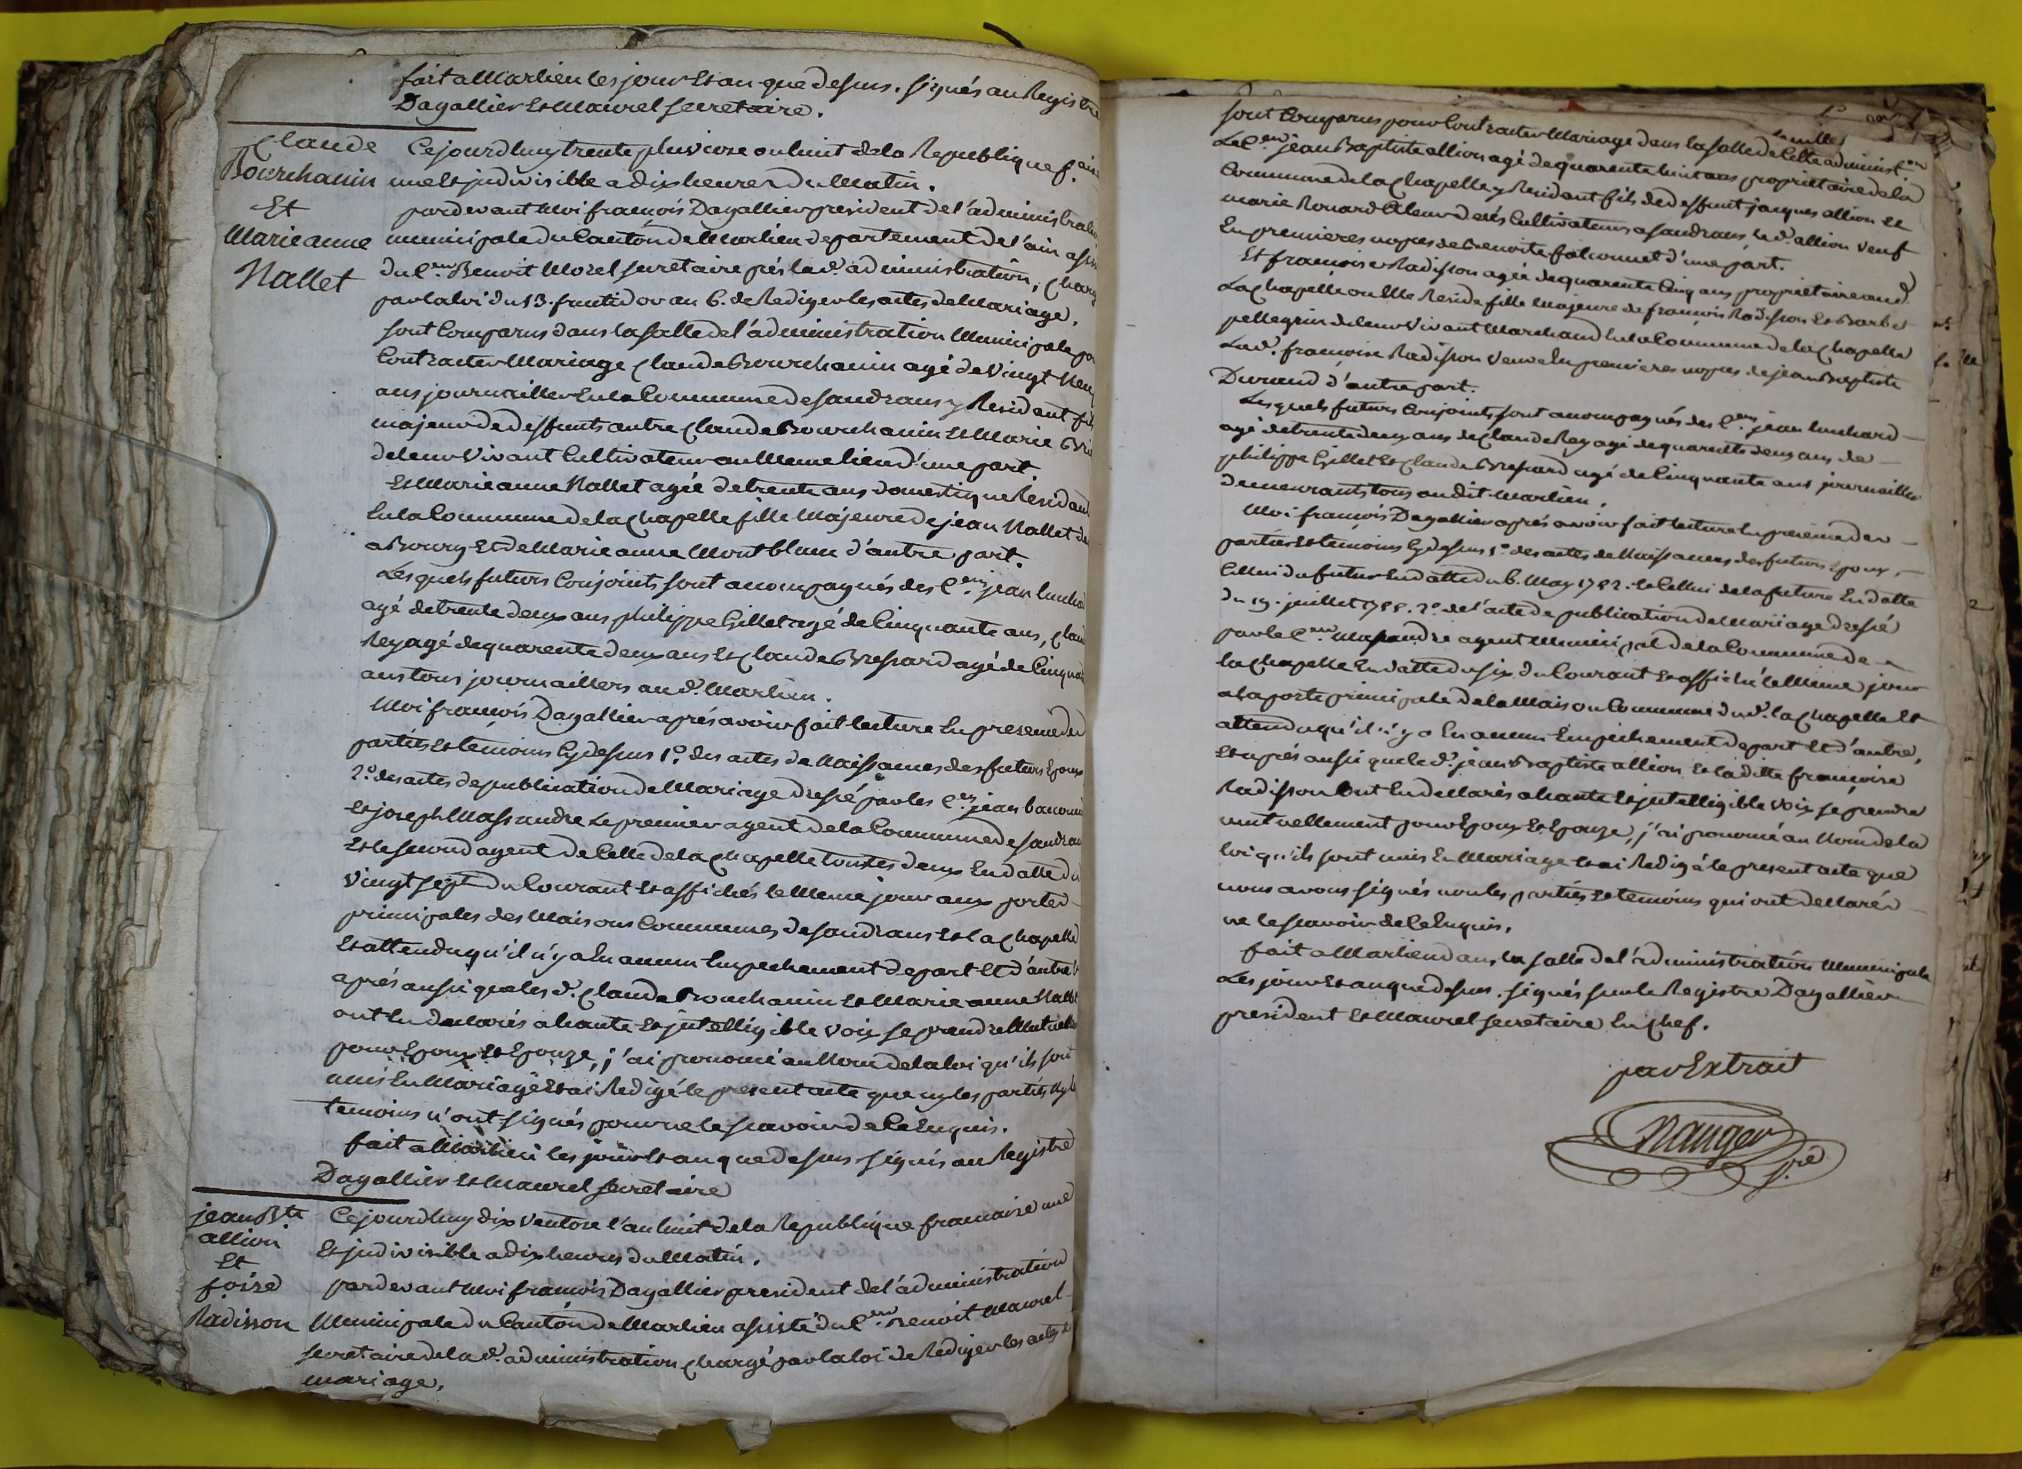 fait a Marlieu les jour et an que dessus. signés au Registre
Dagallier et Maurel secretaire.
Claude
Bourchanin
Et
Marie anne
Nallet
Cejourdhuy trente pluviose an huit de la Republique f.aise
une et indivisible a dix heures du Matin.
pardevant Moi françois Dagallier president de l'administratio
municipale du Canton de Marlieu departement de l'ain assis
du C.en Benoit Morel secretaire prés lad. administration, Charg
par la loi du 13. fructidor an 6. de Rediger les actes de Mariage.
sont Comparus dans la salle de l'administration Municipale po
Contracter Mariage Claude Bourchanin agé de Vingt Neu
ans journaillier en la Commune de sandrans y Resident fils
majeur de deffunts autre Claude Bourchanin et Marie
de leur Vivant Cultivateur au Meme lieu d'une part
Et Marie anne Nallet agée de trente ans domestique Resident
en la Commune de la Chapelle fille Majeure de jean Nallet de
a Bourg et de Marie anne Montblanc d'autre part.
Lesquels futurs Conjoints sont accompagnés des C.ens jean
agé de trente deux ans philippe Gillet agé de Cinquante ans, Clau
Rey agé de quarente deux ans et Claude Bressard agé de Cinquan
ans tous journailliers aud. Marlieu.
Moi françois Dagallier aprés avoir fait lecture en presence de
partiés et temoins Cy dessus 1.o des actes de Naissances des futurs Epoux
2.o des actes de publication de Mariage dressé par les C.ens jean
et joseph Massandre Le premier agent de la Commune de sandran
Et le second agent de Celle de la Chapelle toutes deux En datte du
Vingt sept du Courant et affichés le Meme jour aux portes
principales des Maisons Communes de sandrans et la Chapelle
Et attendu qu'il n'y a Eu aucun Empechement de part et d'autre
aprés aussi que les d. Claude Bourchanin et Marie anne Nallet
ont Eu declarés a haute et intelligible Voix se prendre Mutuel
pour Epoux et Epouze, j'ai prononcé au Nom de la loi qu'ils sont
unis En Mariage Et ai Redigé le present acte que ny les partiés ny les
temoins n'ont signés pour ne le scavoir de Ce Enquis.
fait a Marlieu les jour et an que dessus signés au Registre
Dagallier et Maurel secretaire
jean B.te
allion
Et
f.oise
Radisson
Cejourdhuy dix Ventose l'an huit de la Republique francaise une
Et indivisible a dix heures du Matin.
pardevant Moi françois Dagallier president de l'administration
Municipale du Canton de Marlieu assisté du C.en Benoit Maurel
secretaire de la d. administration Chargé par la loi de Rediger les actes de
mariage.
sont Comparus pour Contracter Mariage dans la salle de Cette administ.on
Le C.en jean Baptiste allion agé de quarente huit ans propriétaire de la
Commune de la Chapelle y Resident fils de deffunt jacques allion et
marie Rouard de leur Cultivateurs a sandrans, le d. allion veuf
En premieres noces de Benoite falconnet d'une part.
Et francoise Radisson agée de quarente Cinq ans propriétaire aud.
La Chapelle ou Elle Reside fille Majeure de francois Radisson Et Barbe
pellegrin de leur Vivant Marchand En la Commune de la Chapelle
La d. francoise Radisson Veuve En premieres noces de jean Baptiste
Durand d'autre part.
Lesquels futurs Conjoints sont accompagnés des C.ens jean
agé de trente deux ans de Claude Rey agé de quarente deux ans de
philippe Gillet et Claude Bressard agé de Cinquante ans journaillier
demeurants tous au dit Marlieu.
Moi francois Dagallier aprés avoir fait lecture En presence des
partiés et temoins Cy dessus 1.o des actes de Naissances des futurs Epoux,
Celui du futur En datte du 6. May 1752. et Cellui de la future En datte
du 19. juillet 1755. 2.o de l'acte de publication de Mariage dressé
par le C.en Massandre agent Municipal de la Commune de
la Chapelle En datte du six du Courant et affiché le Meme jour
a la porte principale de la Maison Commune du d. la Chapelle et
attendu qu'il n'y a Eu aucun Empechement de part et d'autre,
et aprés aussi que le d. jean Baptiste allion et la ditte francoise
Radisson Ont Eu declarés a haute et intelligible Voix se prendre
mutuellement pour Epoux Et Epouze, j'ai prononcé au Nom de la
loi qu'ils sont unis En Mariage et ai Redigé le present acte que
nous avons signés non les partiés et temoins qui ont declarés
ne le scavoir de Ce Enquis.
fait a Marlieu dans la salle de l'administration Municipale
Les jour et an que dessus. signés sur le Registre Dagallier
president et Maurel secretaire En Chef.
par Extrait
Nauger
s.re